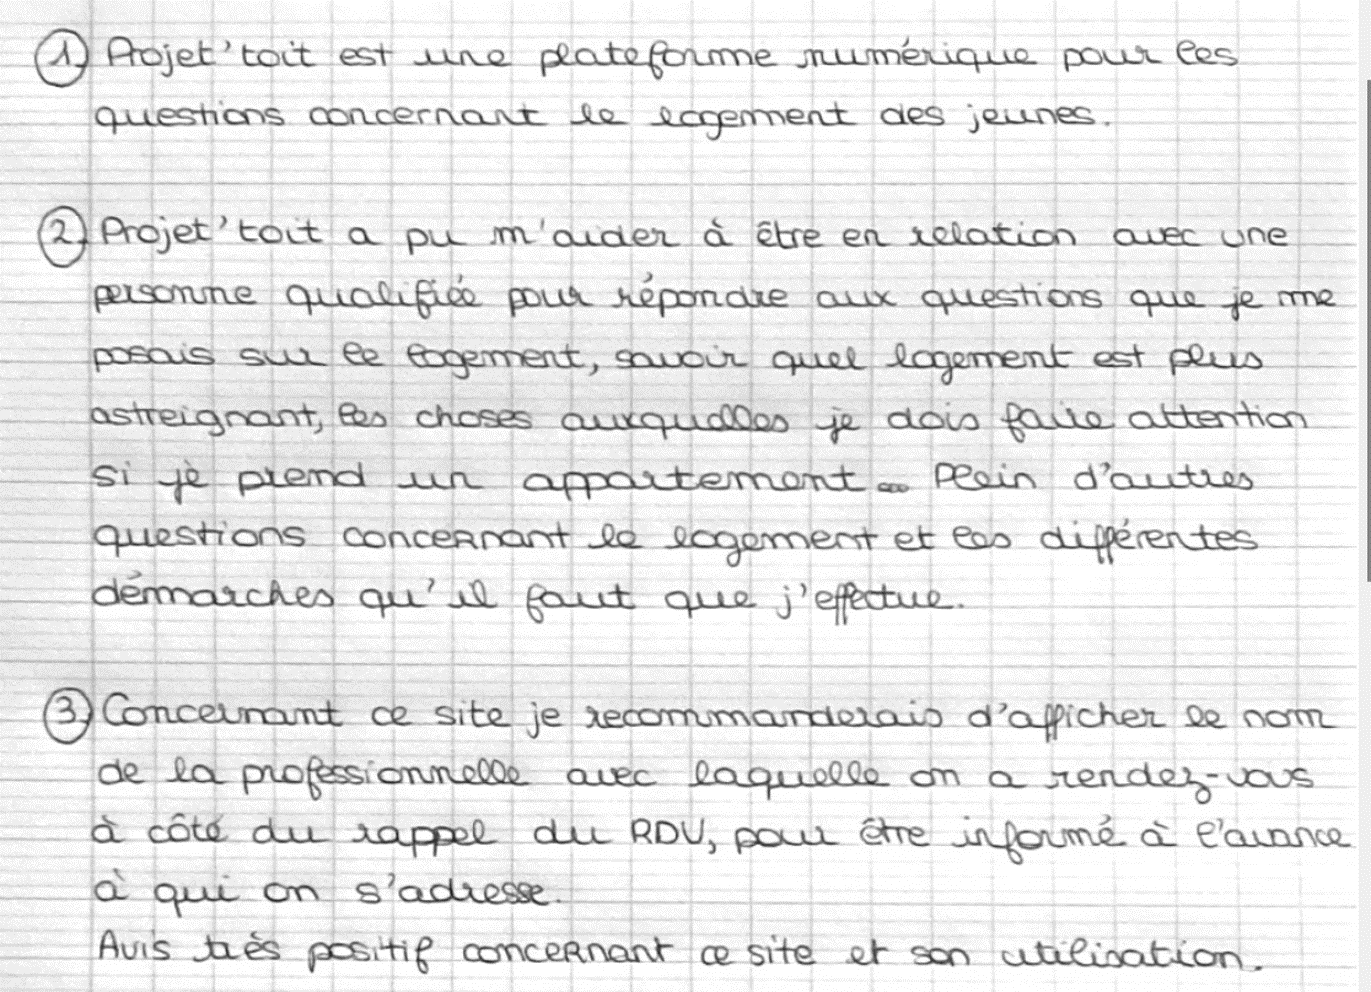 ① Projet'toit est une plateforme numérique pour les
questions concernant le logement des jeunes.
② Projet'toit a pu m'aider à être en relation avec une
personne qualifiée pour répondre aux questions que je me
posais sur le logement, savoir quel logement est plus
astreignant, les choses auxquelles je dois faire attention
si je prend un appartement... Plein d'autres
questions concernant le logement et les différentes
démarches qu'il faut que j'effectue.
③ Concernant ce site je recommanderais d'afficher le nom
de la professionnelle avec laquelle on a rendez-vous
à côté du rappel du RDV, pour être informé à l'avance
à qui on s'adresse.
Avis très positif concernant ce site et son utilisation.